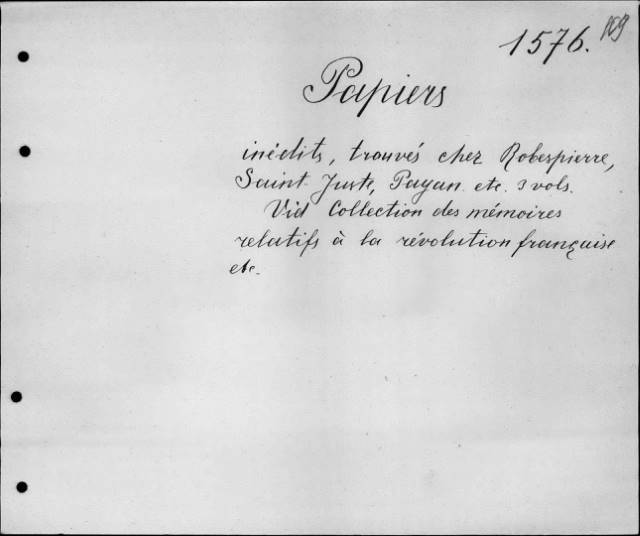 169
1576.
Papiers
inédits, trouvés chez Robespierre,
Saint-Juste, Payan. etc. 3 vols.
Vid Collection des mémoires
relatifs à la révolution française
etc.